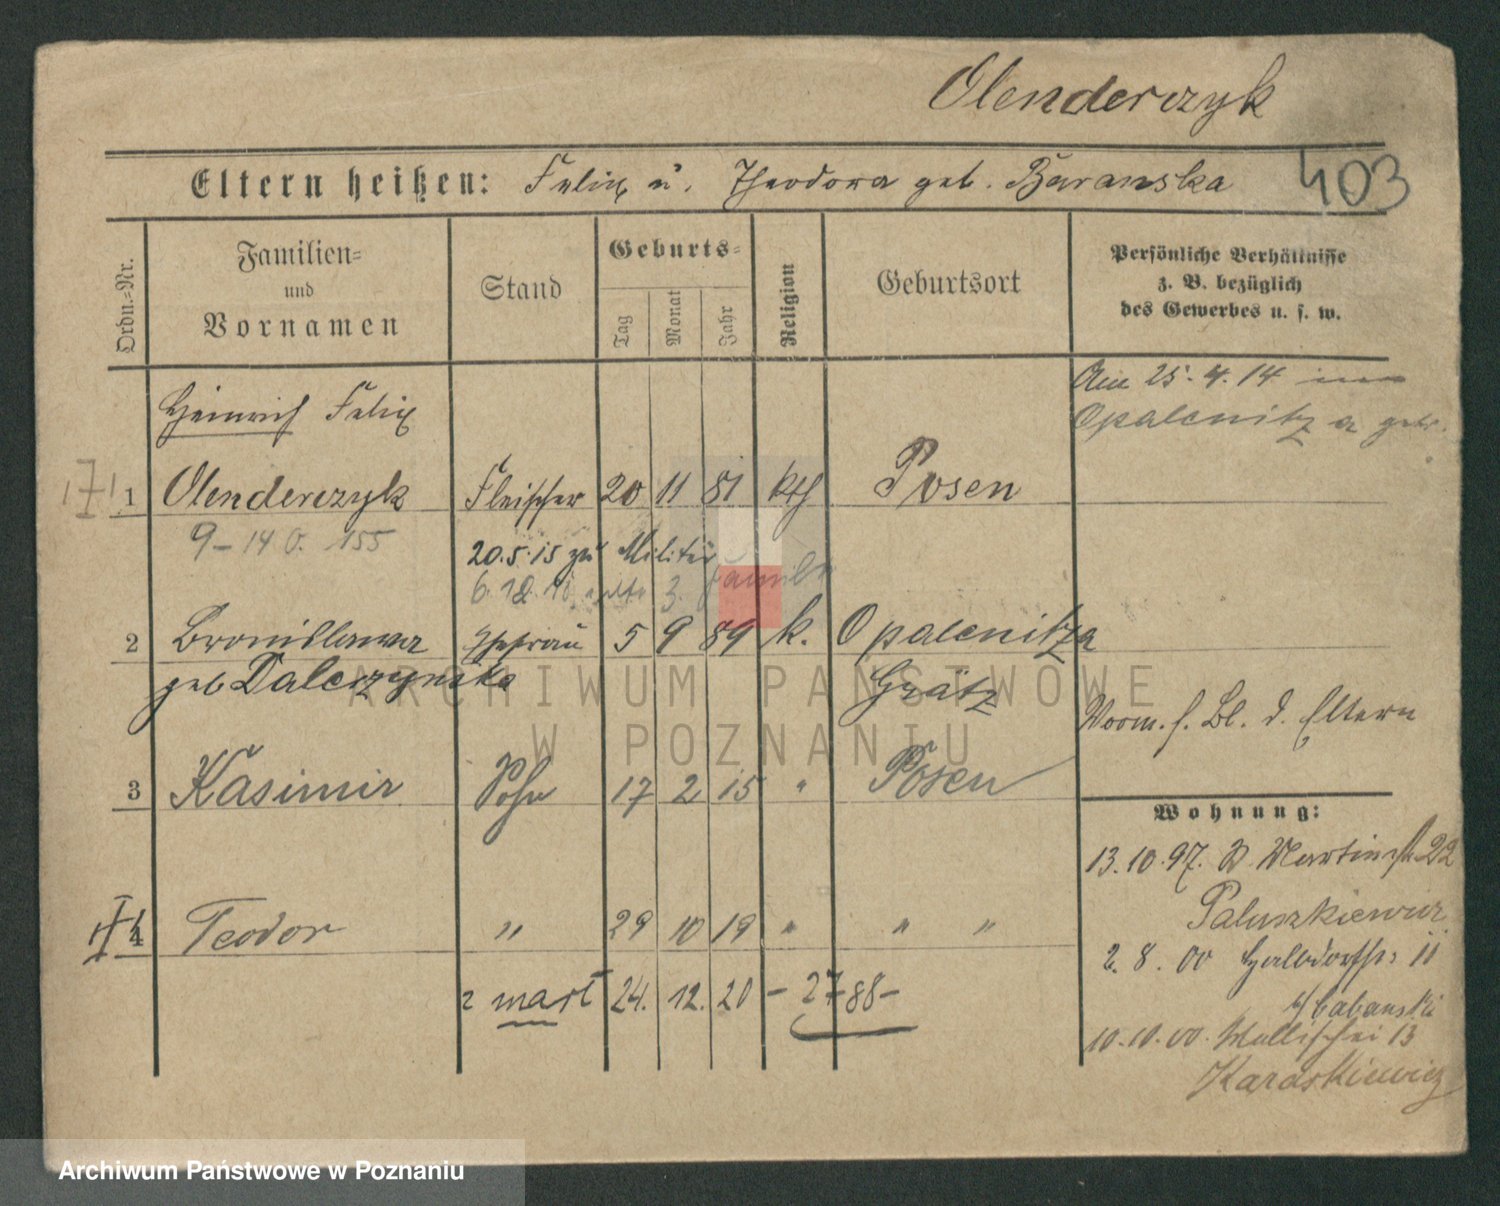 Olenderczyk
Eltern heißen: Felix u. Theodora geb. Baranska
403
Ordn.-Nr.
Familien- und Vornamen
Stand
Geburts-
Tag
Monat
Jahr
Religion
Geburtsort
Persönliche Verhältnisse
z. B. bezüglich
des Gewerbes u. s. w.
Am 25.4.14 in
Opalenitza getr.
Heinrich Felix
1 Olenderczyk Fleischer 20 11 81 kth Posen
9-14 0. 155
20.5.15 zu Militär
6.12.18 z. Familie
2 Bronislawa Ehefrau 5 9 89 k. Opalenitza
geb Dalczynska Grätz
Vorm. s. Bl. d. Eltern
3 Kasimir Sohn 17 2 15 " Posen
Wohnung:
13.10.97. St. Martinstr. 22
Paluszkiewicz
4 Teodor " 29 10 19 " " "
2.8.00 Halbdorfstr. 11
mart 24. 12. 20 - 2788-
10.10.00. Wallischei 13
Karaskiewicz
ARCHIWUM PAŃSTWOWE
W POZNANIU
Archiwum Państwowe w Poznaniu